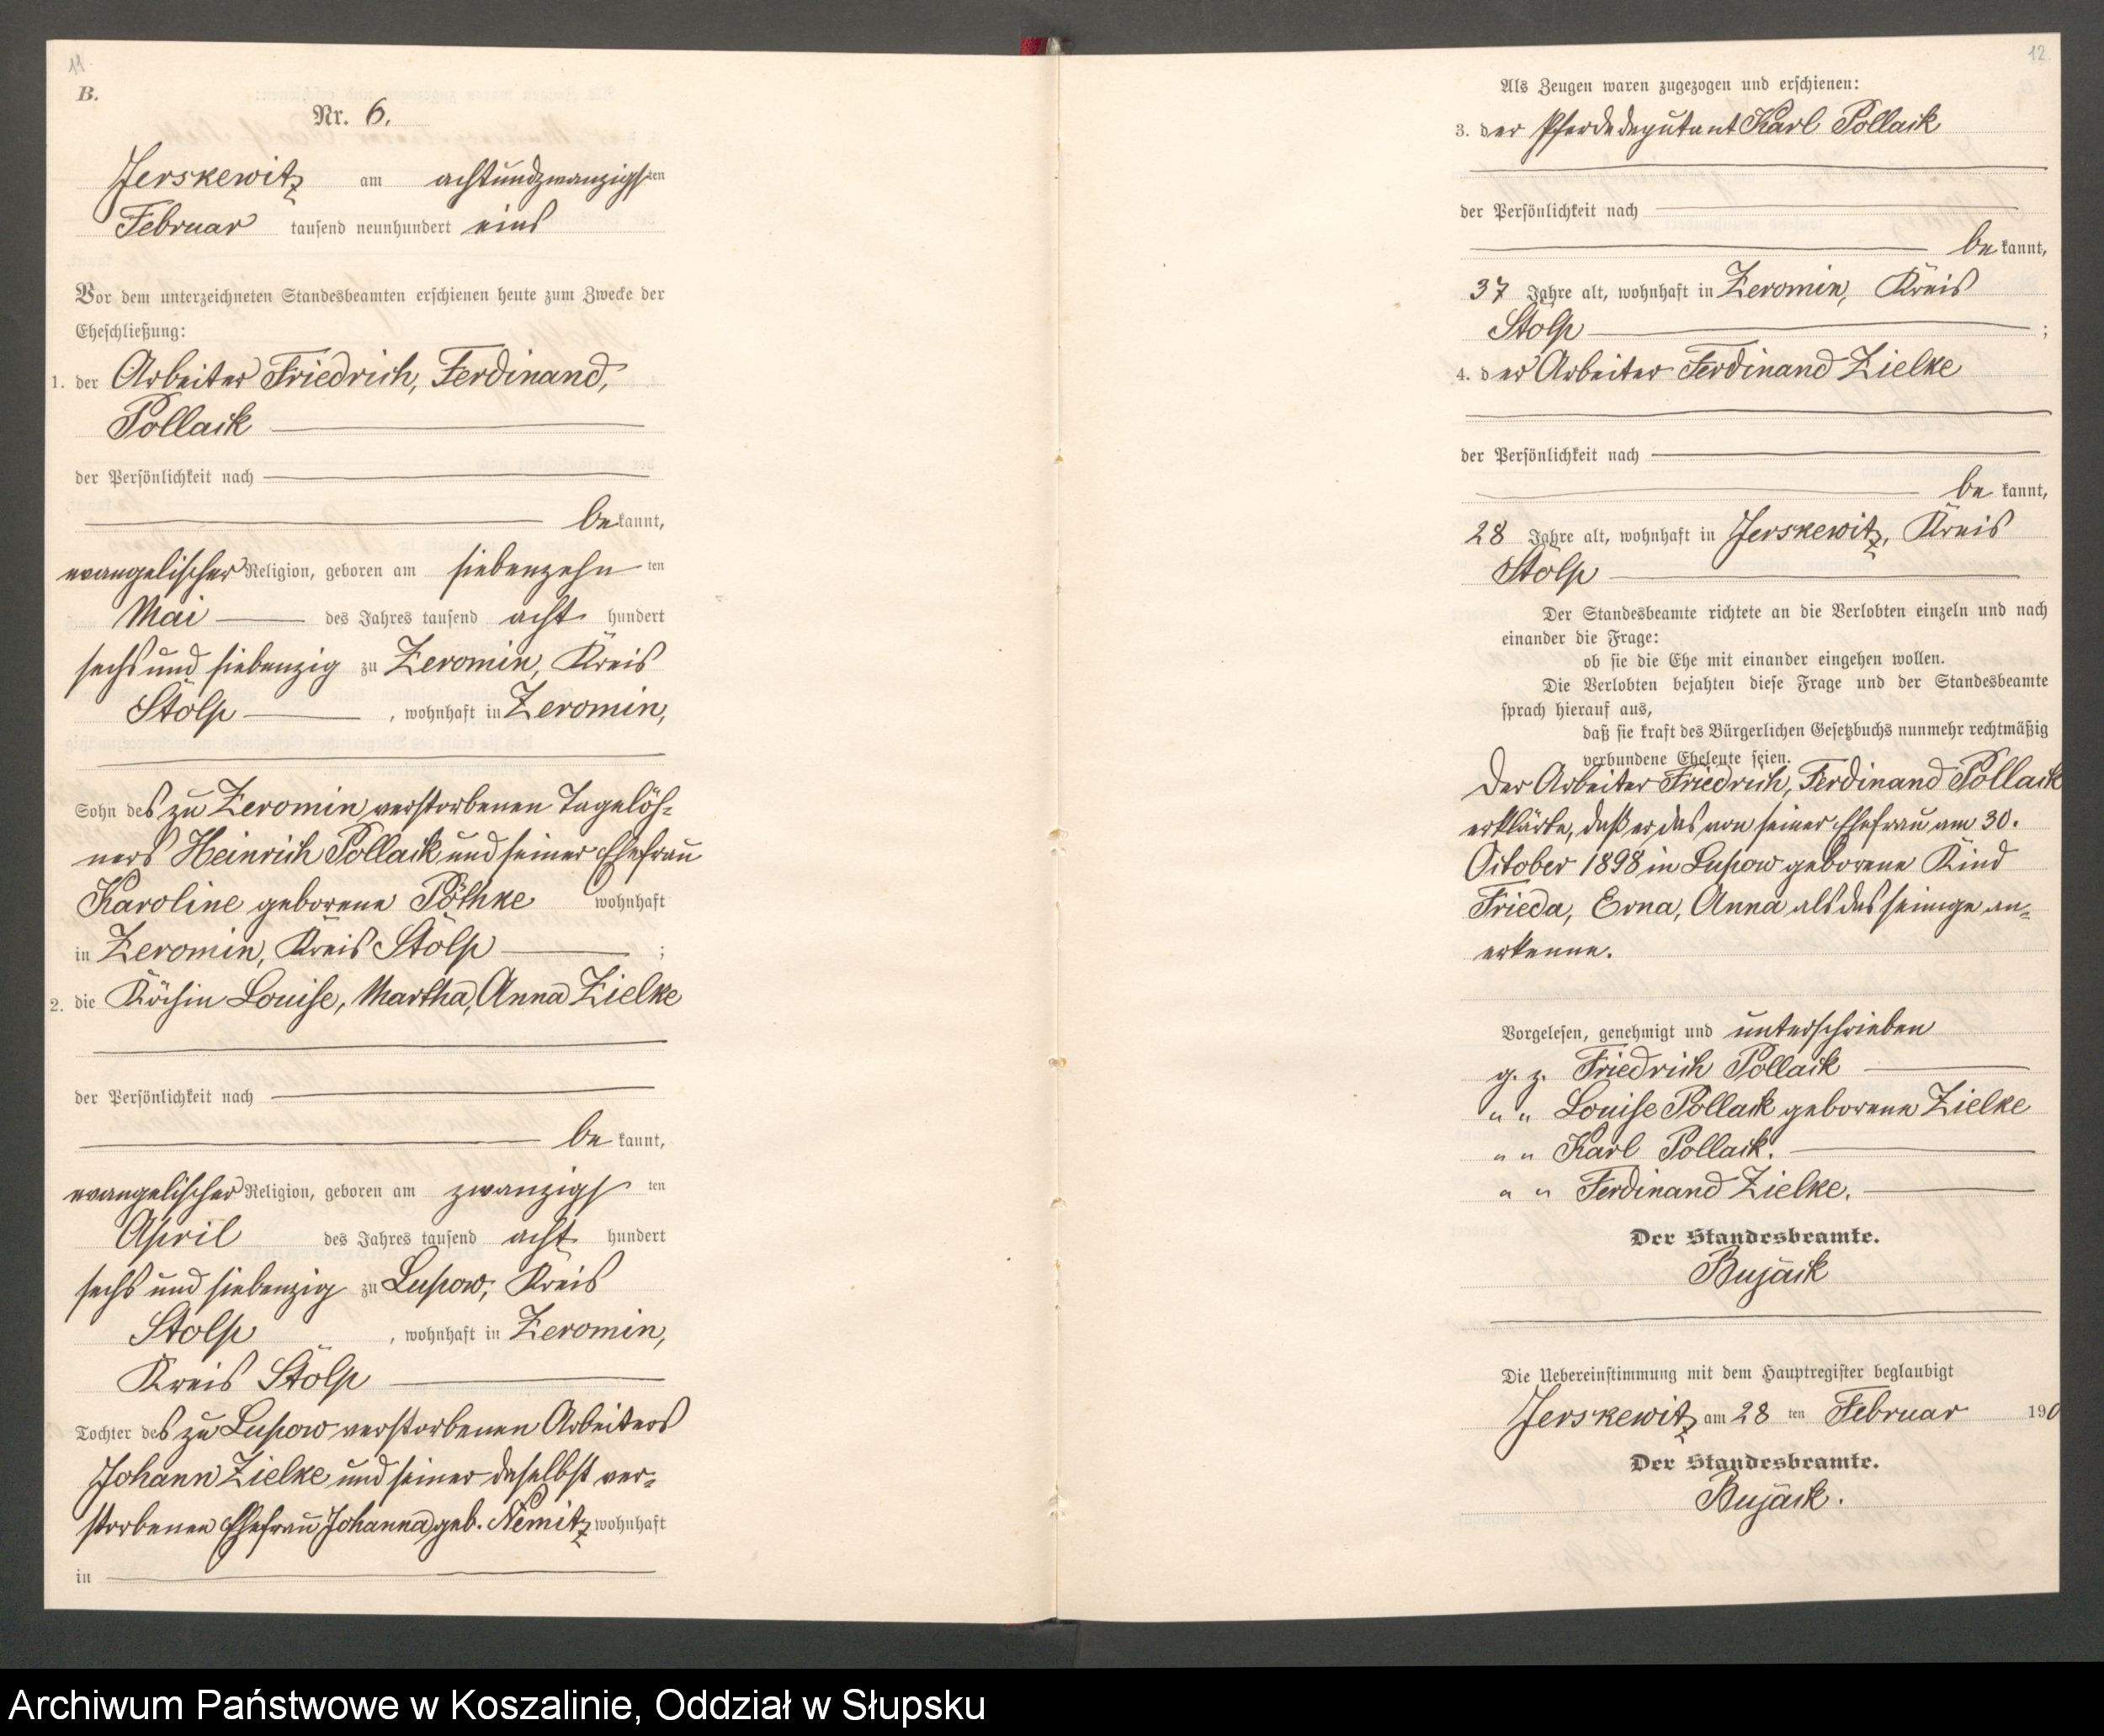 11
B.
Nr. 6.
Jerskewitz am achtundzwanzigsten
Februar tausend neunhundert eins
Vor dem unterzeichneten Standesbeamten erschienen heute zum Zwecke der
Eheschließung:
1. der Arbeiter Friedrich, Ferdinand,
Pollack
der Persönlichkeit nach
bekannt,
evangelischer Religion, geboren am siebenzehnten
Mai des Jahres tausend acht hundert
sechs und siebenzig zu Zeromin, Kreis
Stolp, wohnhaft in Zeromin,
Sohn des zu Zeromin verstorbenen Tagelöh-
ners Heinrich Pollack und seiner Ehefrau
Karoline geborene Pöthke wohnhaft
in Zeromin, Kreis Stolp ;
2. die Köchin Louise, Martha, Anna Zielke
der Persönlichkeit nach
be kannt,
evangelischer Religion, geboren am zwanzigsten
April des Jahres tausend acht hundert
sechs und siebenzig zu Lupow, Kreis
Stolp, wohnhaft in Zeromin,
Kreis Stolp
Tochter des zu Lupow verstorbenen Arbeiters
Johann Zielke und seiner daselbst ver-
storbenen Ehefrau Johanna geb. Nemitz wohnhaft
in
12.
Als Zeugen waren zugezogen und erschienen:
3. der Pferdedeputant Karl Pollack
der Persönlichkeit nach
be kannt,
37 Jahre alt, wohnhaft in Zeromin, Kreis
Stolp ;
4. der Arbeiter Ferdinand Zielke
der Persönlichkeit nach
be kannt,
28 Jahre alt, wohnhaft in Jerskewitz, Kreis
Stolp
Der Standesbeamte richtete an die Verlobten einzeln und nach
einander die Frage:
ob sie die Ehe mit einander eingehen wollen.
Die Verlobten bejahten diese Frage und der Standesbeamte
sprach hierauf aus,
daß sie kraft des Bürgerlichen Gesetzbuchs nunmehr rechtmäßig
verbundene Eheleute seien.
Der Arbeiter Friedrich, Ferdinand Pollack
erklärte, daß er das von seiner Ehefrau am 30.
October 1898 in Lupow geborene Kind
Frieda, Erna, Anna als das seinige an-
erkenne.
Vorgelesen, genehmigt und unterschrieben
g. z. Friedrich Pollack
" " Louise Pollack geborene Zielke
" " Karl Pollack.
" " Ferdinand Zielke.
Der Standesbeamte.
Bujack
Die Uebereinstimmung mit dem Hauptregister beglaubigt
Jerskewitz am 28 ten Februar 190
Der Standesbeamte.
Bujack.
Archiwum Państwowe w Koszalinie, Oddział w Słupsku